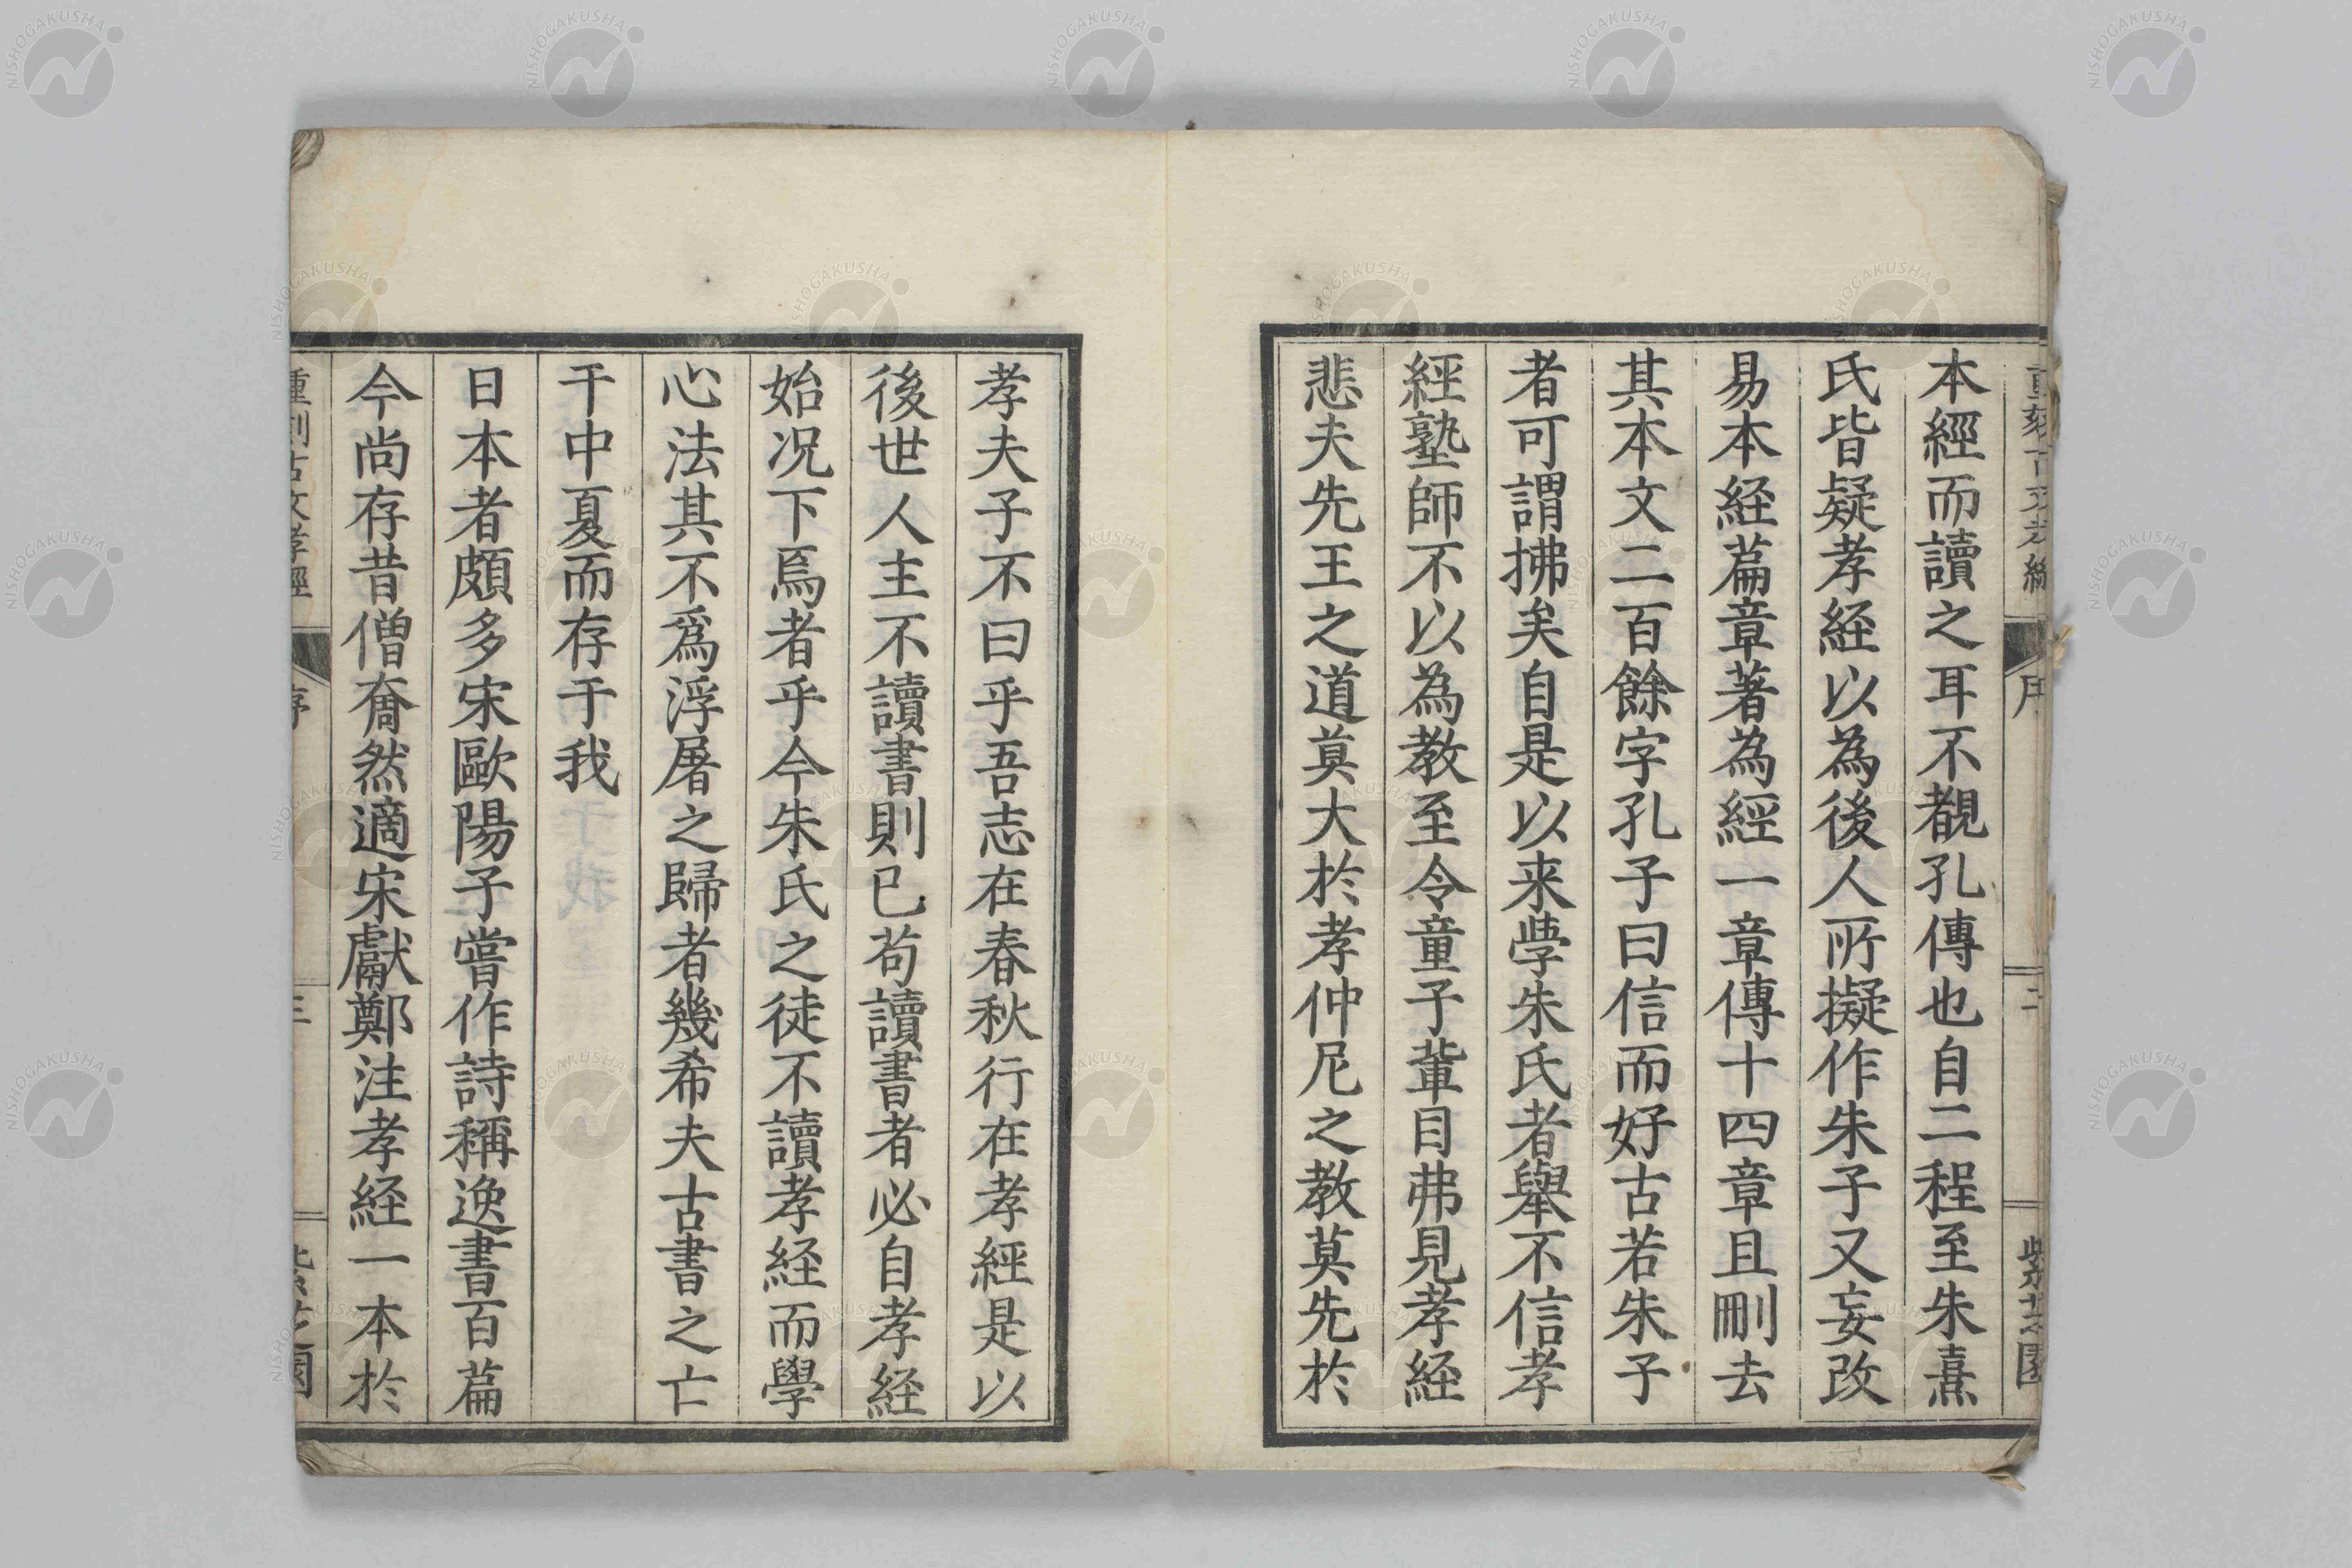 重刻古文孝經 序 二 紫芝園
本經而讀之耳不覩孔傳也自二程至朱熹
氏皆疑孝経以為後人所擬作朱子又妄改
易本経篇章著為經一章傳十四章且刪去
其本文二百餘字孔子曰信而好古若朱子
者可謂拂矣自是以来學朱氏者舉不信孝
經塾師不以為教至令童子輩目弗見孝経
悲夫先王之道莫大於孝仲尼之教莫先於
孝夫子不曰乎吾志在春秋行在孝經是以
後世人主不讀書則已苟讀書者必自孝経
始况下焉者乎今朱氏之徒不讀孝経而學
心法其不爲浮屠之歸者幾希夫古書之亡
于中夏而存于我
日本者頗多宋歐陽子嘗作詩稱逸書百篇
今尚存昔僧奝然適宋獻鄭注孝経一本於
重刻古文孝經 序 三 紫芝園
NISHOGAKUSHA